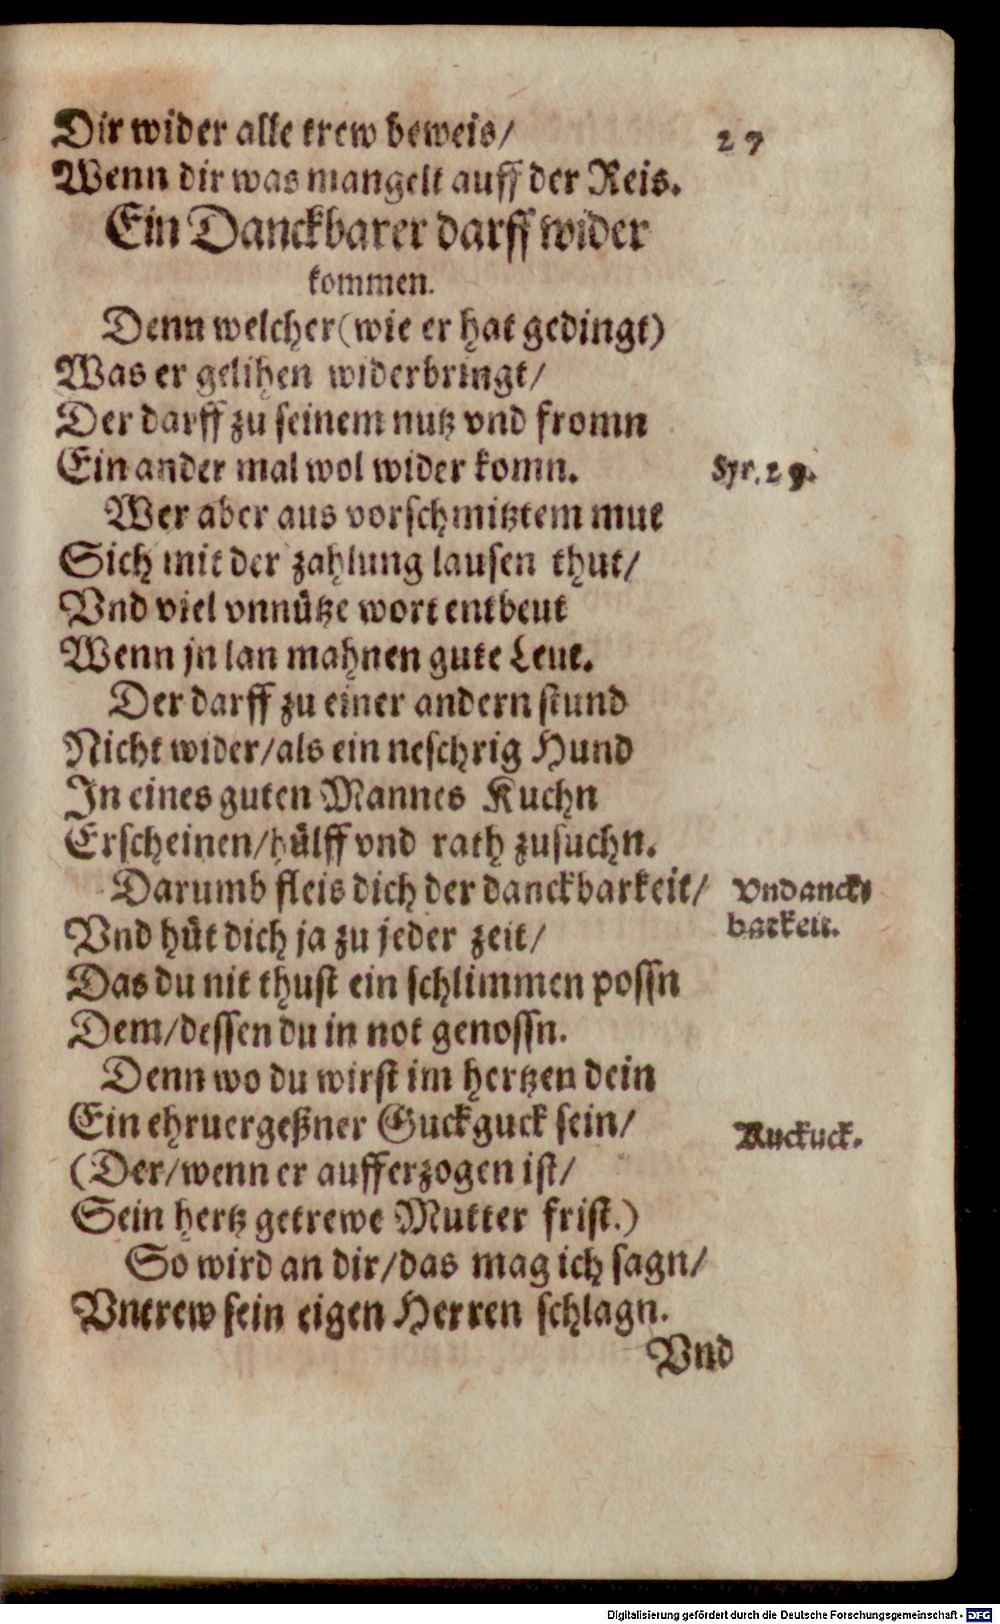 Dir wider alle trew beweis/
27
Wenn dir was mangelt auff der Reis.
Ein Danckbarer darff wider
kommen.
Denn welcher (wie er hat gedingt)
Was er gelihen widerbringt/
Der darff zu seinem nutz vnd fromn
Ein ander mal wol wider komn.
Syr. 29.
Wer aber aus vorschmitztem mut
Sich mit der zahlung lausen thut/
Vnd viel vnnütze wort entbeut
Wenn jn lan mahnen gute Leut.
Der darff zu einer andern stund
Nicht wider/als ein neschrig Hund
In eines guten Mannes Kuchn
Erscheinen/hülff vnd rath zusuchn.
Darumb fleis dich der danckbarkeit/
Vndanck-
barkeit.
Vnd hüt dich ja zu jeder zeit/
Das du nit thust ein schlimmen possn
Dem/dessen du in not genossn.
Denn wo du wirst im hertzen dein
Ein ehruergeßner Guckguck sein/
Kuckuck.
(Der/wenn er aufferzogen ist/
Sein hertz getrewe Mutter frist.)
So wird an dir/das mag ich sagn/
Vntrew sein eigen Herren schlagn.
Vnd
Digitalisierung gefördert durch die Deutsche Forschungsgemeinschaft - DFG